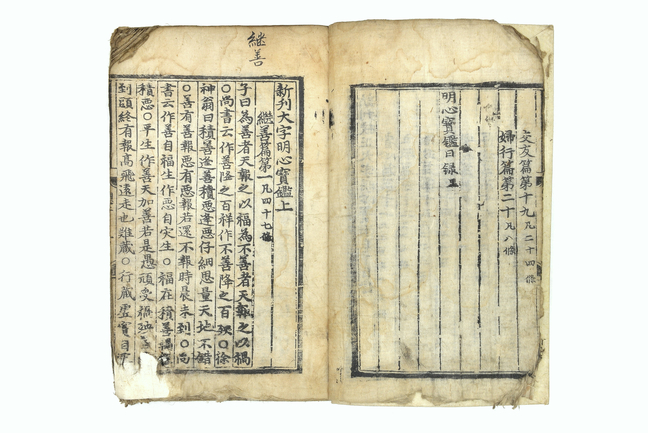 交友篇第十九凡二十四條
婦行篇第二十凡八條
明心寶鑑目錄
継善
新刋大字明心寶鑑上
繼善篇第一凡四十七條
子曰為善者天報之以福為不善者天報之以禍
○尚書云作善降之百祥作不善降之百殃○徐
神翁曰積善逢善積悪逢悪仔細思量天地不錯
○善有善報悪有悪報若還不報時晨未到○尚
書云作善自福生作悪自灾生○福在積善禍
積悪○平生作善天加善若是愚頑受禍殃
到頭終有報高飛遠走也難藏○行藏虛實自